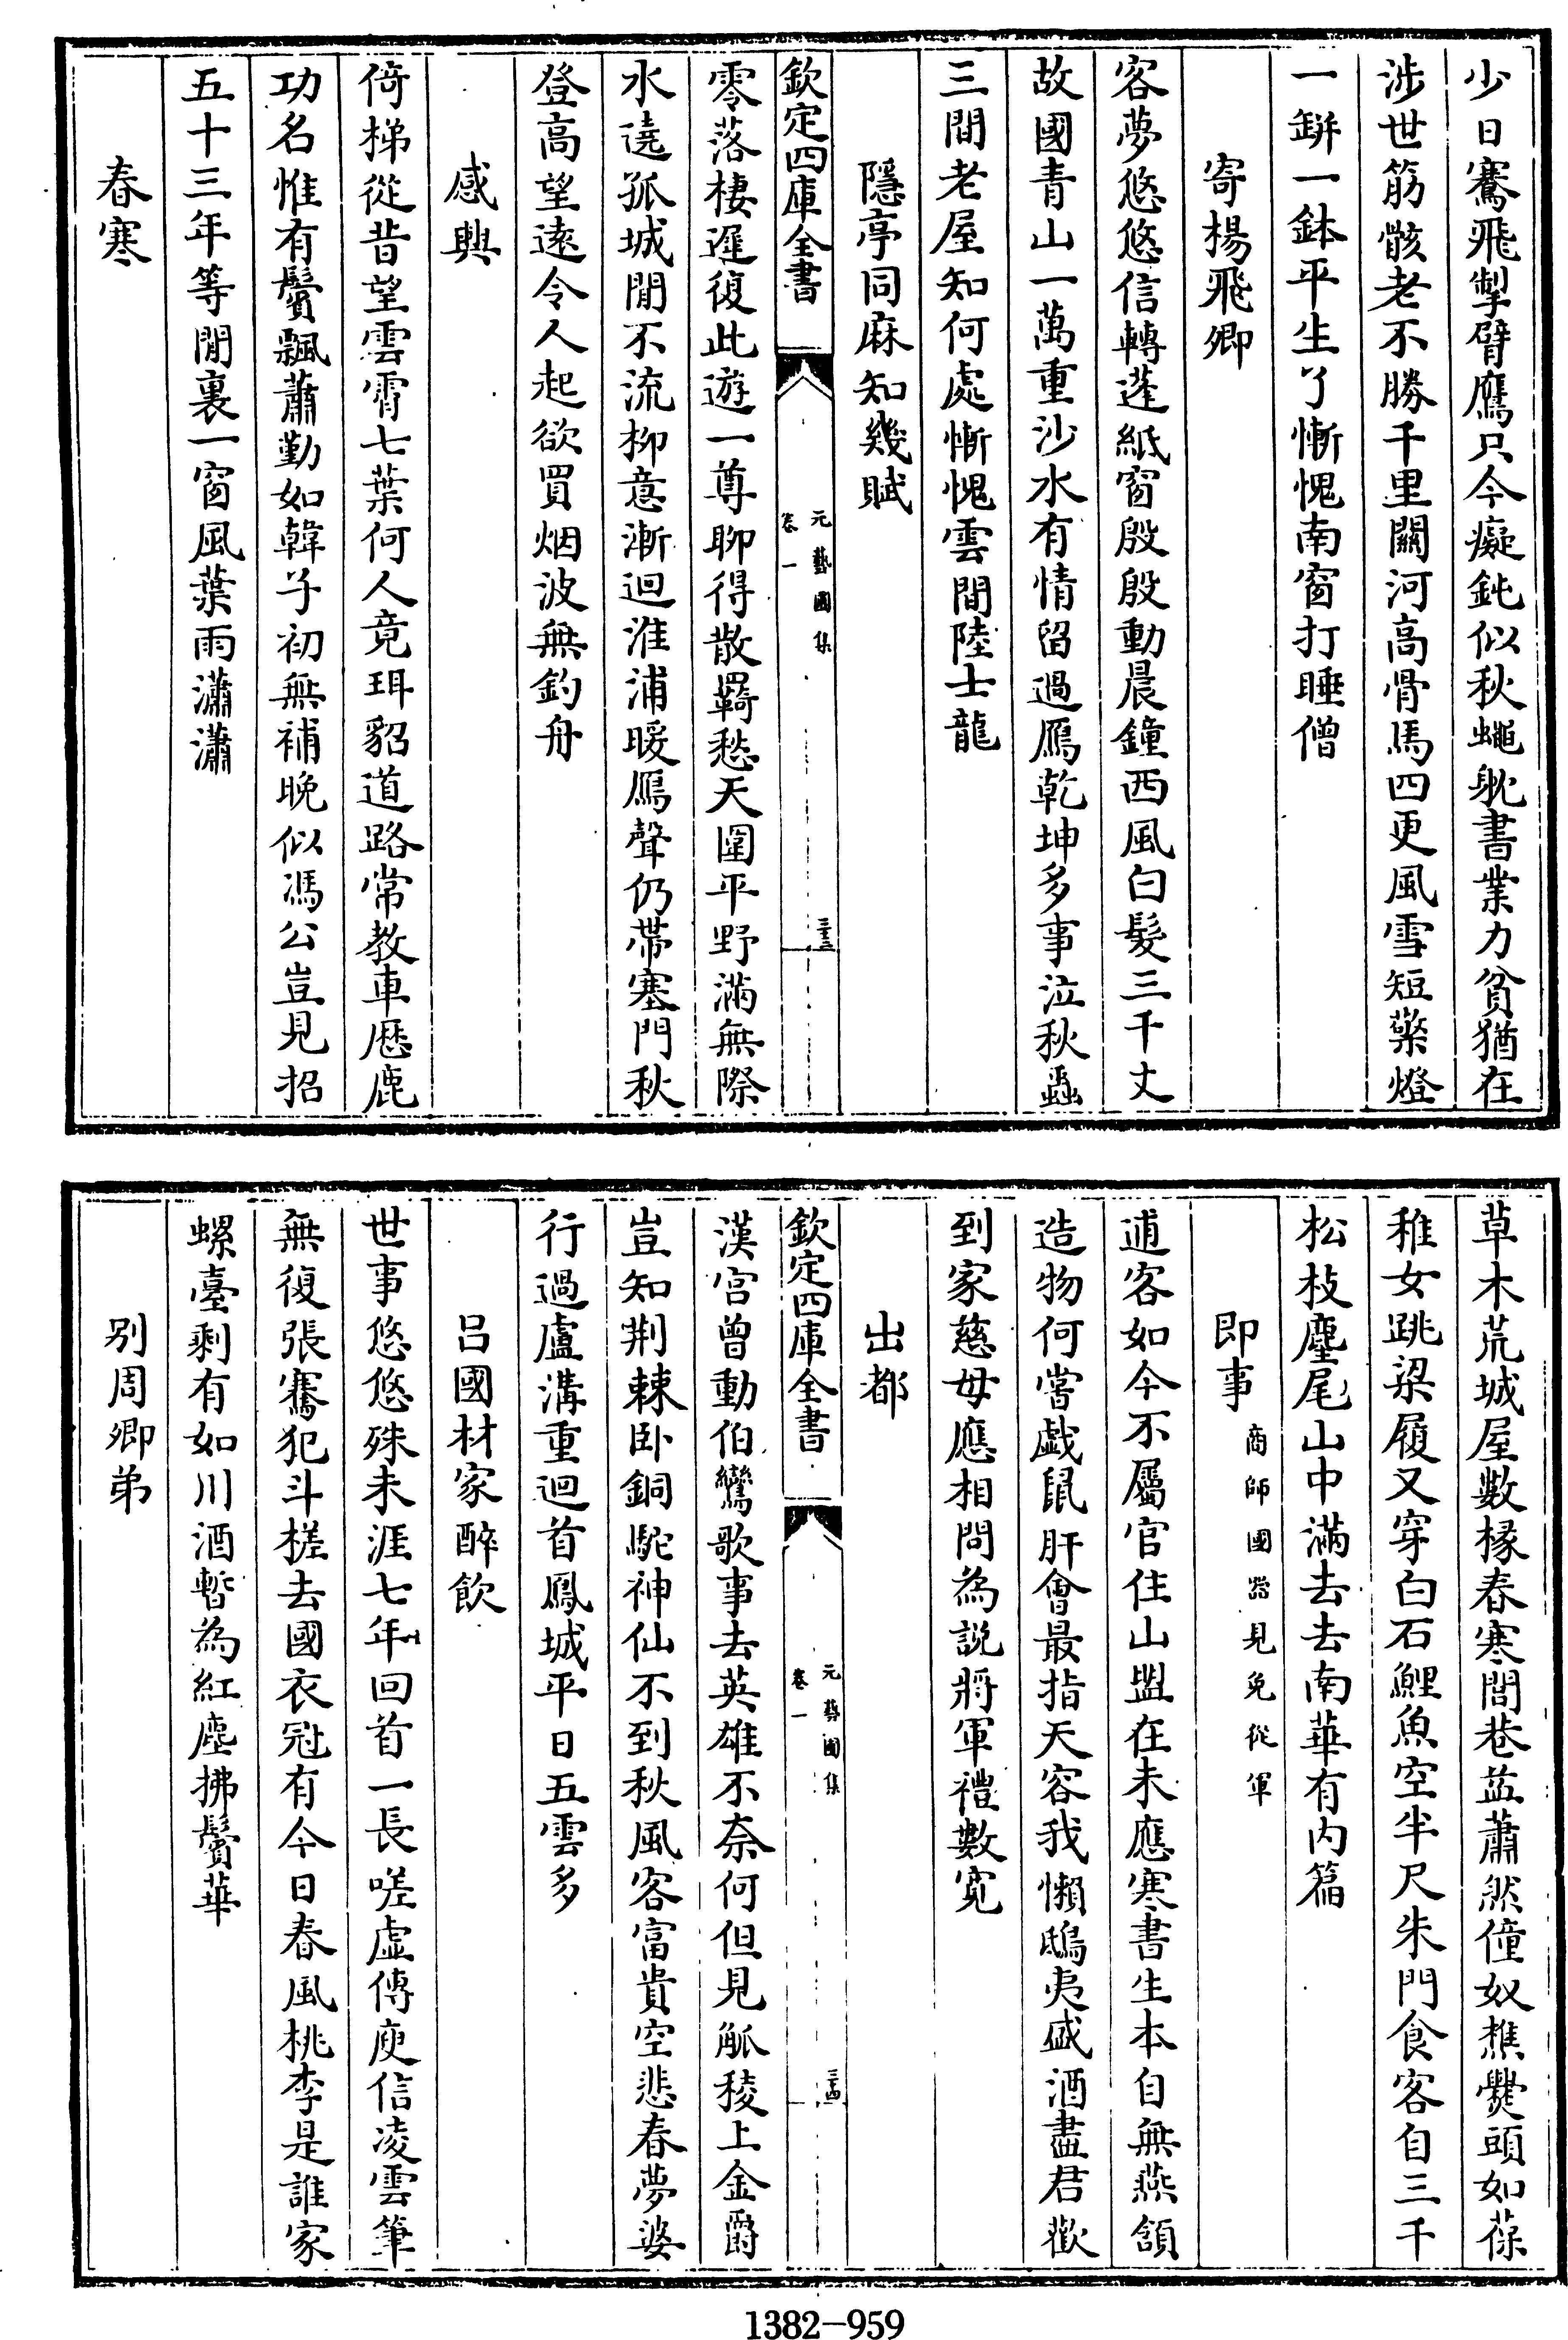 少日騫飛掣臂鷹只今癡鈍似秋蠅躭書業力貧猶在
涉世筋骸老不勝千里關河高骨馬四更風雪短檠燈
一缾一鉢平生了慚愧南窗打睡僧
寄楊飛卿
客夢悠悠信轉蓬紙窗殷殷動晨鐘西風白髮三千丈
故國青山一萬重沙水有情留過鴈乾坤多事泣秋蟲
三間老屋知何處慚愧雲間陸士龍
隱亭同麻知幾賦
欽定四庫全書
元藝圃集
卷一
三十三
零落棲遲復此遊一尊聊得散羇愁天圍平野滿無際
水遶孤城閒不流柳意漸迴淮浦暖鴈聲仍帶塞門秋
登高望遠令人起欲買烟波無釣舟
感興
倚梯從昔望雲霄七葉何人竟珥貂道路常教車歷鹿
功名惟有鬢飄蕭勤如韓子初無補晚似馮公豈見招
五十三年等閒裏一窗風葉雨瀟瀟
春寒
草木荒城屋數椽春寒閭巷益蕭然僮奴樵爨頭如葆
稚女跳梁履又穿白石鯉魚空半尺朱門食客自三千
松枝麈尾山中滿去去南華有内篇
即事 商帥國器見免從軍
逋客如今不屬官住山盟在未應寒書生本自無燕頷
造物何嘗戯鼠肝會最指天容我懶鴟夷盛酒盡君歡
到家慈母應相問為説將軍禮數寛
出都
欽定四庫全書
元藝圃集
卷一
三十四
漢宫曾動伯鸞歌事去英雄不奈何但見觚稜上金爵
豈知荆棘卧銅駝神仙不到秋風客富貴空悲春夢婆
行過盧溝重迴首鳳城平日五雲多
吕國材家醉飲
世事悠悠殊未涯七年回首一長嗟虛傳庾信凌雲筆
無復張騫犯斗槎去國衣冠有今日春風桃李是誰家
螺臺剩有如川酒暫為紅塵拂鬢華
别周卿弟
1382-959